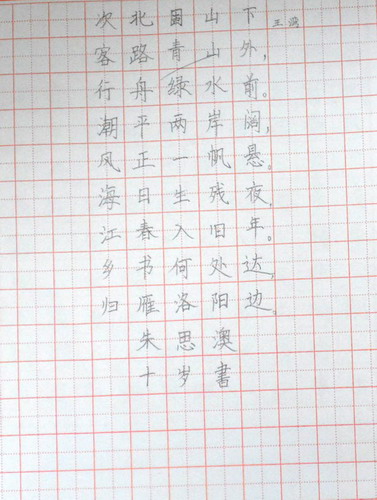 次北固山下 王湾
客路青山外，
行舟绿水前。
潮平两岸阔，
风正一帆悬。
海日生残夜，
江春入旧年。
乡书何处达，
归雁洛阳边。
朱思澳
十岁書